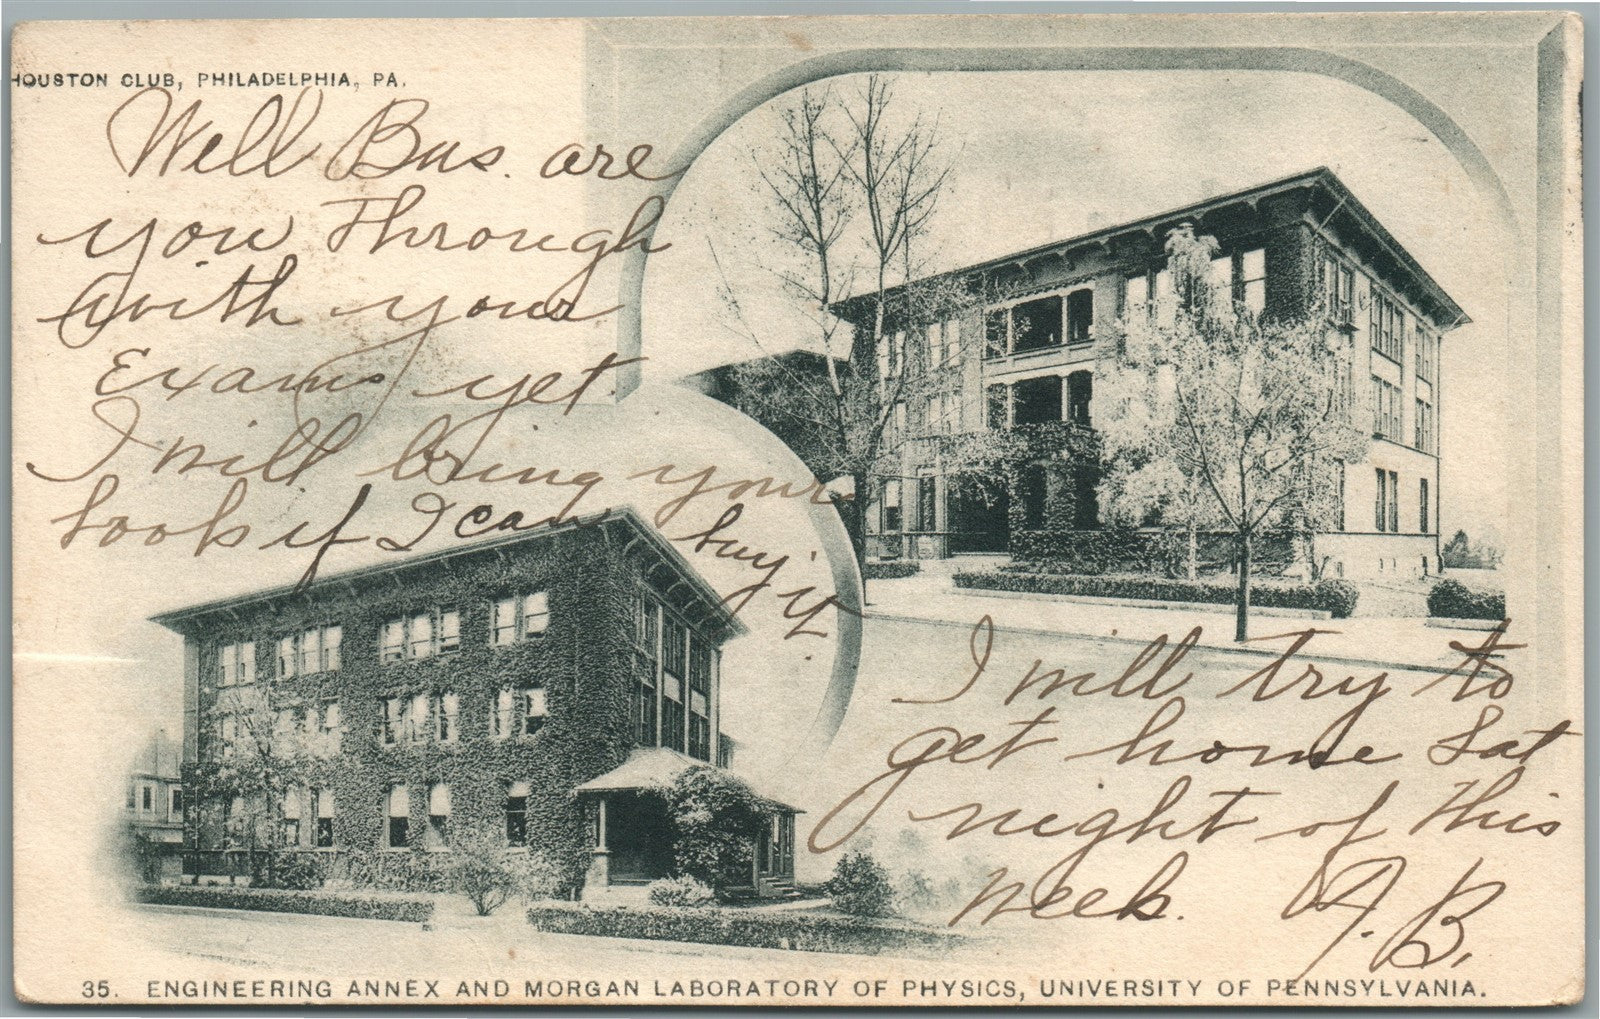 HOUSTON CLUB, PHILADELPHIA, PA.
Well Bus. are
you through
with your
Exams yet
I will bring your
book if I can buy it.
I will try to
get home Sat
night of this
week. J. B.
35. ENGINEERING ANNEX AND MORGAN LABORATORY OF PHYSICS, UNIVERSITY OF PENNSYLVANIA.